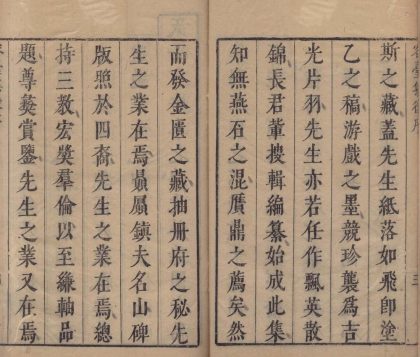 斯之藏蓋先生紙落如飛卽塗
乙之稿游戲之墨競珍襲爲吉
光片羽先生亦若任作飄英散
錦長君輩搜輯編纂始成此集
知無燕石之混贋鼎之薦矣然
而發金匱之藏抽冊府之秘先
生之業在焉贔屭鎮夫名山碑
版照於四裔先生之業在焉總
持三教宏奬羣倫以至縑軸品
題尊彝賞鑒先生之業又在焉